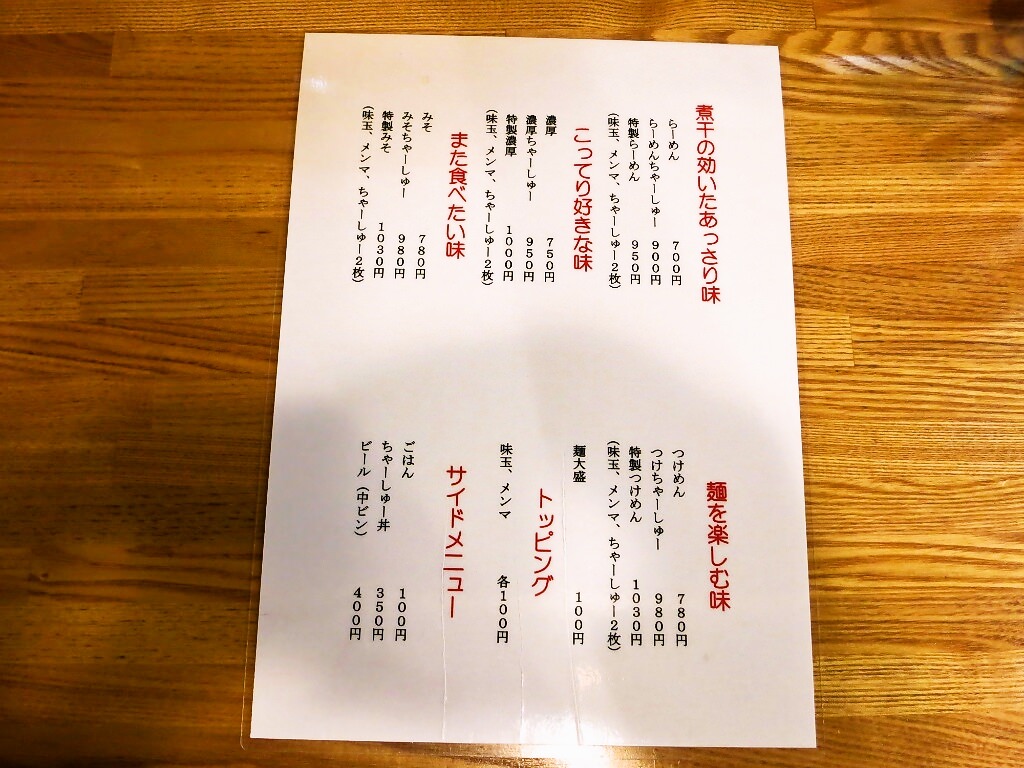 煮干の効いたあっさり味
らーめん 700円
らーめんちゃーしゅー 900円
特製らーめん 950円
(味玉、メンマ、ちゃーしゅー2枚)
こってり好きな味
濃厚 750円
濃厚ちゃーしゅー 950円
特製濃厚 1000円
(味玉、メンマ、ちゃーしゅー2枚)
また食べたい味
みそ 780円
みそちゃーしゅー 980円
特製みそ 1030円
(味玉、メンマ、ちゃーしゅー2枚)
麺を楽しむ味
つけめん 780円
つけちゃーしゅー 980円
特製つけめん 1030円
(味玉、メンマ、ちゃーしゅー2枚)
麺大盛 100円
トッピング
味玉、メンマ 各100円
サイドメニュー
ごはん 100円
ちゃーしゅー丼 350円
ビール(中ビン) 400円